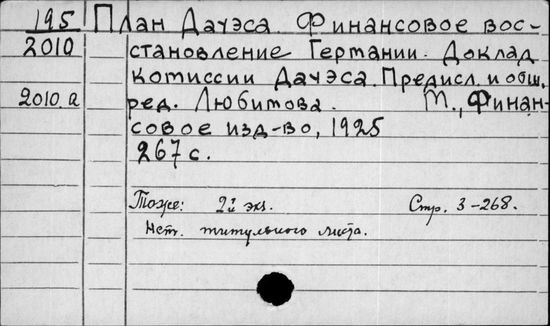 195 План Дауэса. Финансовое вос-
2010 становление Германии. Доклад
комиссии Дауэса. Предисл. и общ.
2010.а ред. Любимова. М., Финан-
совое изд-во, 1925
267 с.
Тоже: 2й экз. Стр. 3-268.
Нет титульного листа.